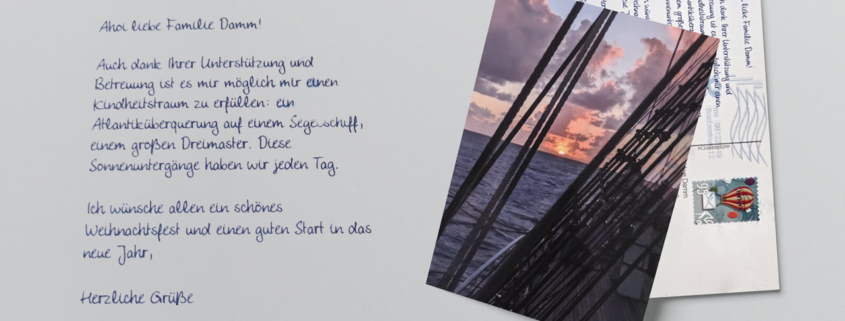 Ahoi liebe Familie Damm!
Auch dank Ihrer Unterstützung und
Betreuung ist es mir möglich mir einen
Kindheitstraum zu erfüllen: ein
Atlantiküberquerung auf einem Segelschiff,
einem großen Dreimaster. Diese
Sonnenuntergänge haben wir jeden Tag.
Ich wünsche allen ein schönes
Weihnachtsfest und einen guten Start in das
neue Jahr,
Herzliche Grüße
liebe Familie Damm!
dank Ihrer Unterstützung und
Damm
95